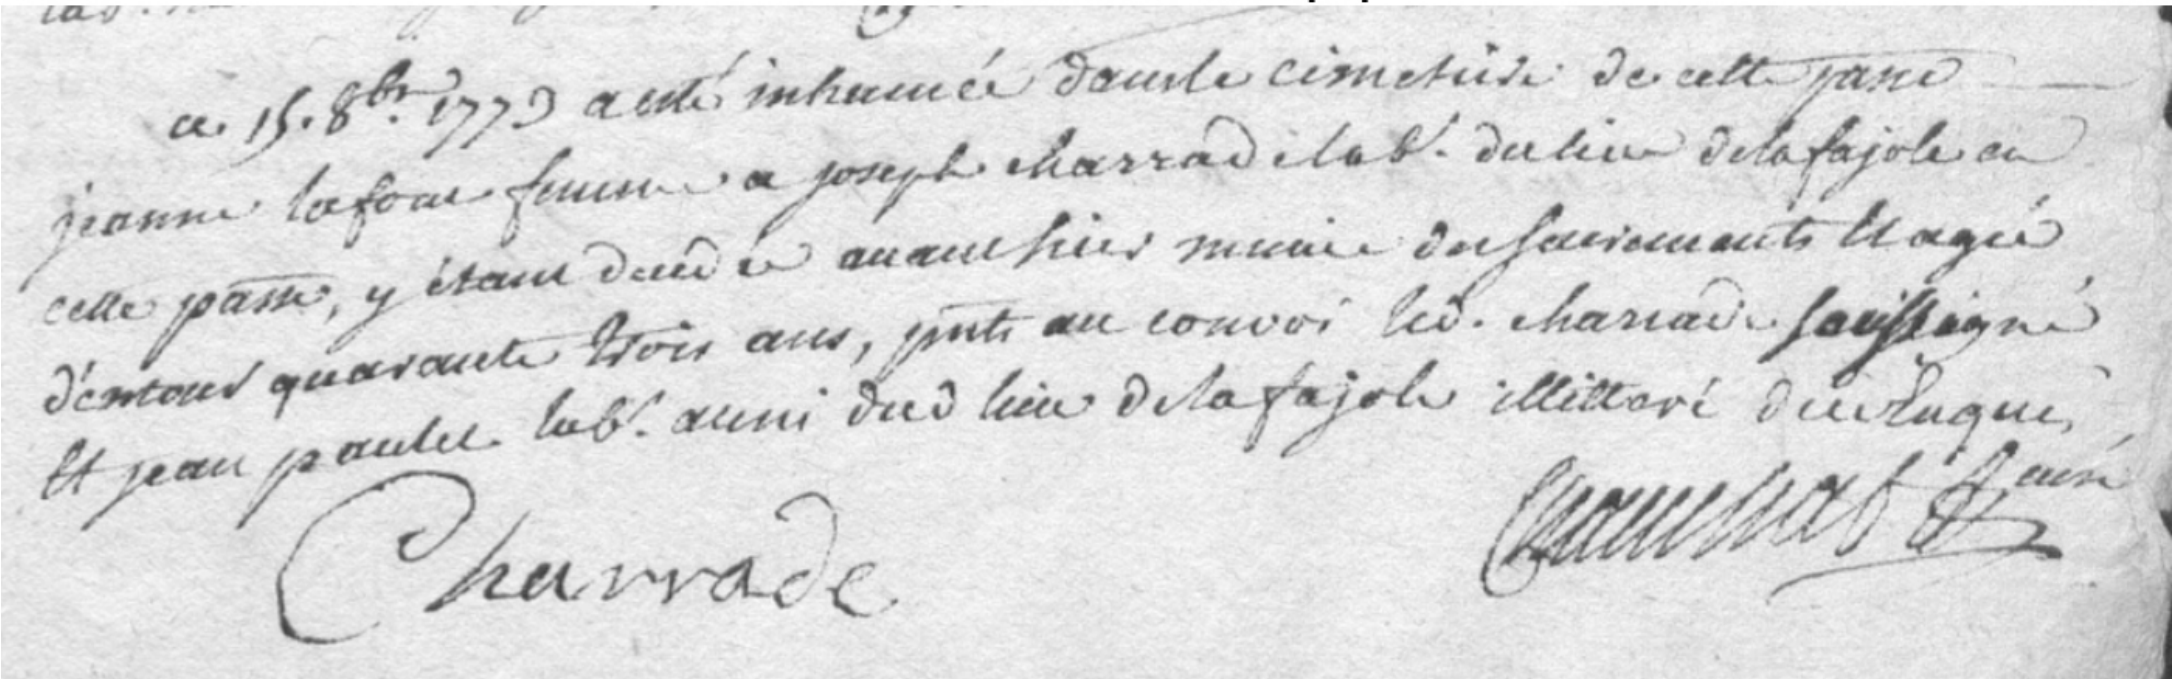 ce. 15. 8br. 1773 a eté inhumée dans le cimetiere de cette passe
jeanne lafon femme a joseph charrade lab.r du lieu de la fajole en
cette passe, y étant decedée avant hier munie des sacrements et agée
d'entour quarante trois ans, pnts au convoi led. charrade soussigné
et jean paulet lab.r aussi dud lieu de la fajole illitteré de ce enquis,
Charrade
curé